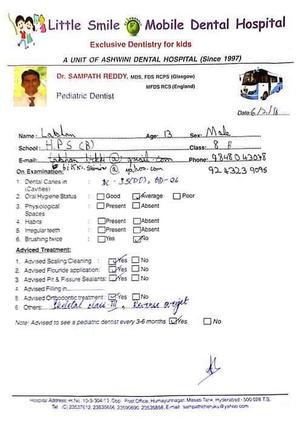 Little Smile Mobile Dental Hospital
Exclusive Dentistry for kids
A UNIT OF ASHWINI DENTAL HOSPITAL (Since 1997)
Dr. SAMPATH REDDY, MDS, FDS RCPS (Glasgow)
MFDS RCS (England)
Pediatric Dentist
Date: 6/2/16
Name: Age: 13 Sex: Male
School: H.P.S (B) Class: 8 B
E-mail: @ gmail.com Phone: 9848043048
On Examination @ yahoo.com 92 4323 9095
1 Dental Caries in (Cavities)
2 Oral Hygiene Status : Good Average Poor
3 Physiological Spaces : Present Absent
4 Habits : Present Absent
5 Irregular teeth : Present Absent
6 Brushing twice : Yes No
Adviced Treatment:
1. Advised Scaling Cleaning : Yes No
2. Advised Flouride application: Yes No
3. Advised Pit & Fissure Sealants: Yes No
4. Advised Filling in
5. Advised Orthodontic treatment : Yes No
6 Others: Skeletal class-III, Reverse overjet
Note: Advised to see a pediatric dentist every 3-6 months Yes No
Hospital Address: H.No. 10-3-304/13, Opp. Post Office, Humayunnagar, Masab Tank, Hyderabad - 500 028 T.S.
Tel: (C) 23537612, 23535656, 23590690, 23535858, E-mail: sampathcheruku@yahoo.com